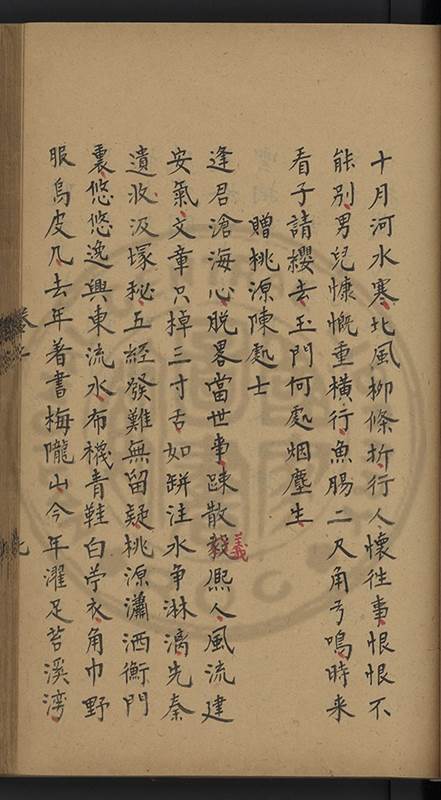 十月河水寒北風柳條折行人懷往事恨恨不
能别男兒慷慨重横行魚腸二尺角弓鳴時来
看子請纓去玉門何處烟塵生
贈桃源陳處士
逢君滄海心脱畧當世事踈散毅熈人風流建
義
安氣文章只掉三寸舌如缾注水争淋漓先秦
遺收汲塚秘五經發難無留疑桃源瀟洒衡門
裏悠悠逸興東流水布襪青鞋白苧衣角巾野
服烏皮几去年著書梅隴山今年濯足苕溪湾